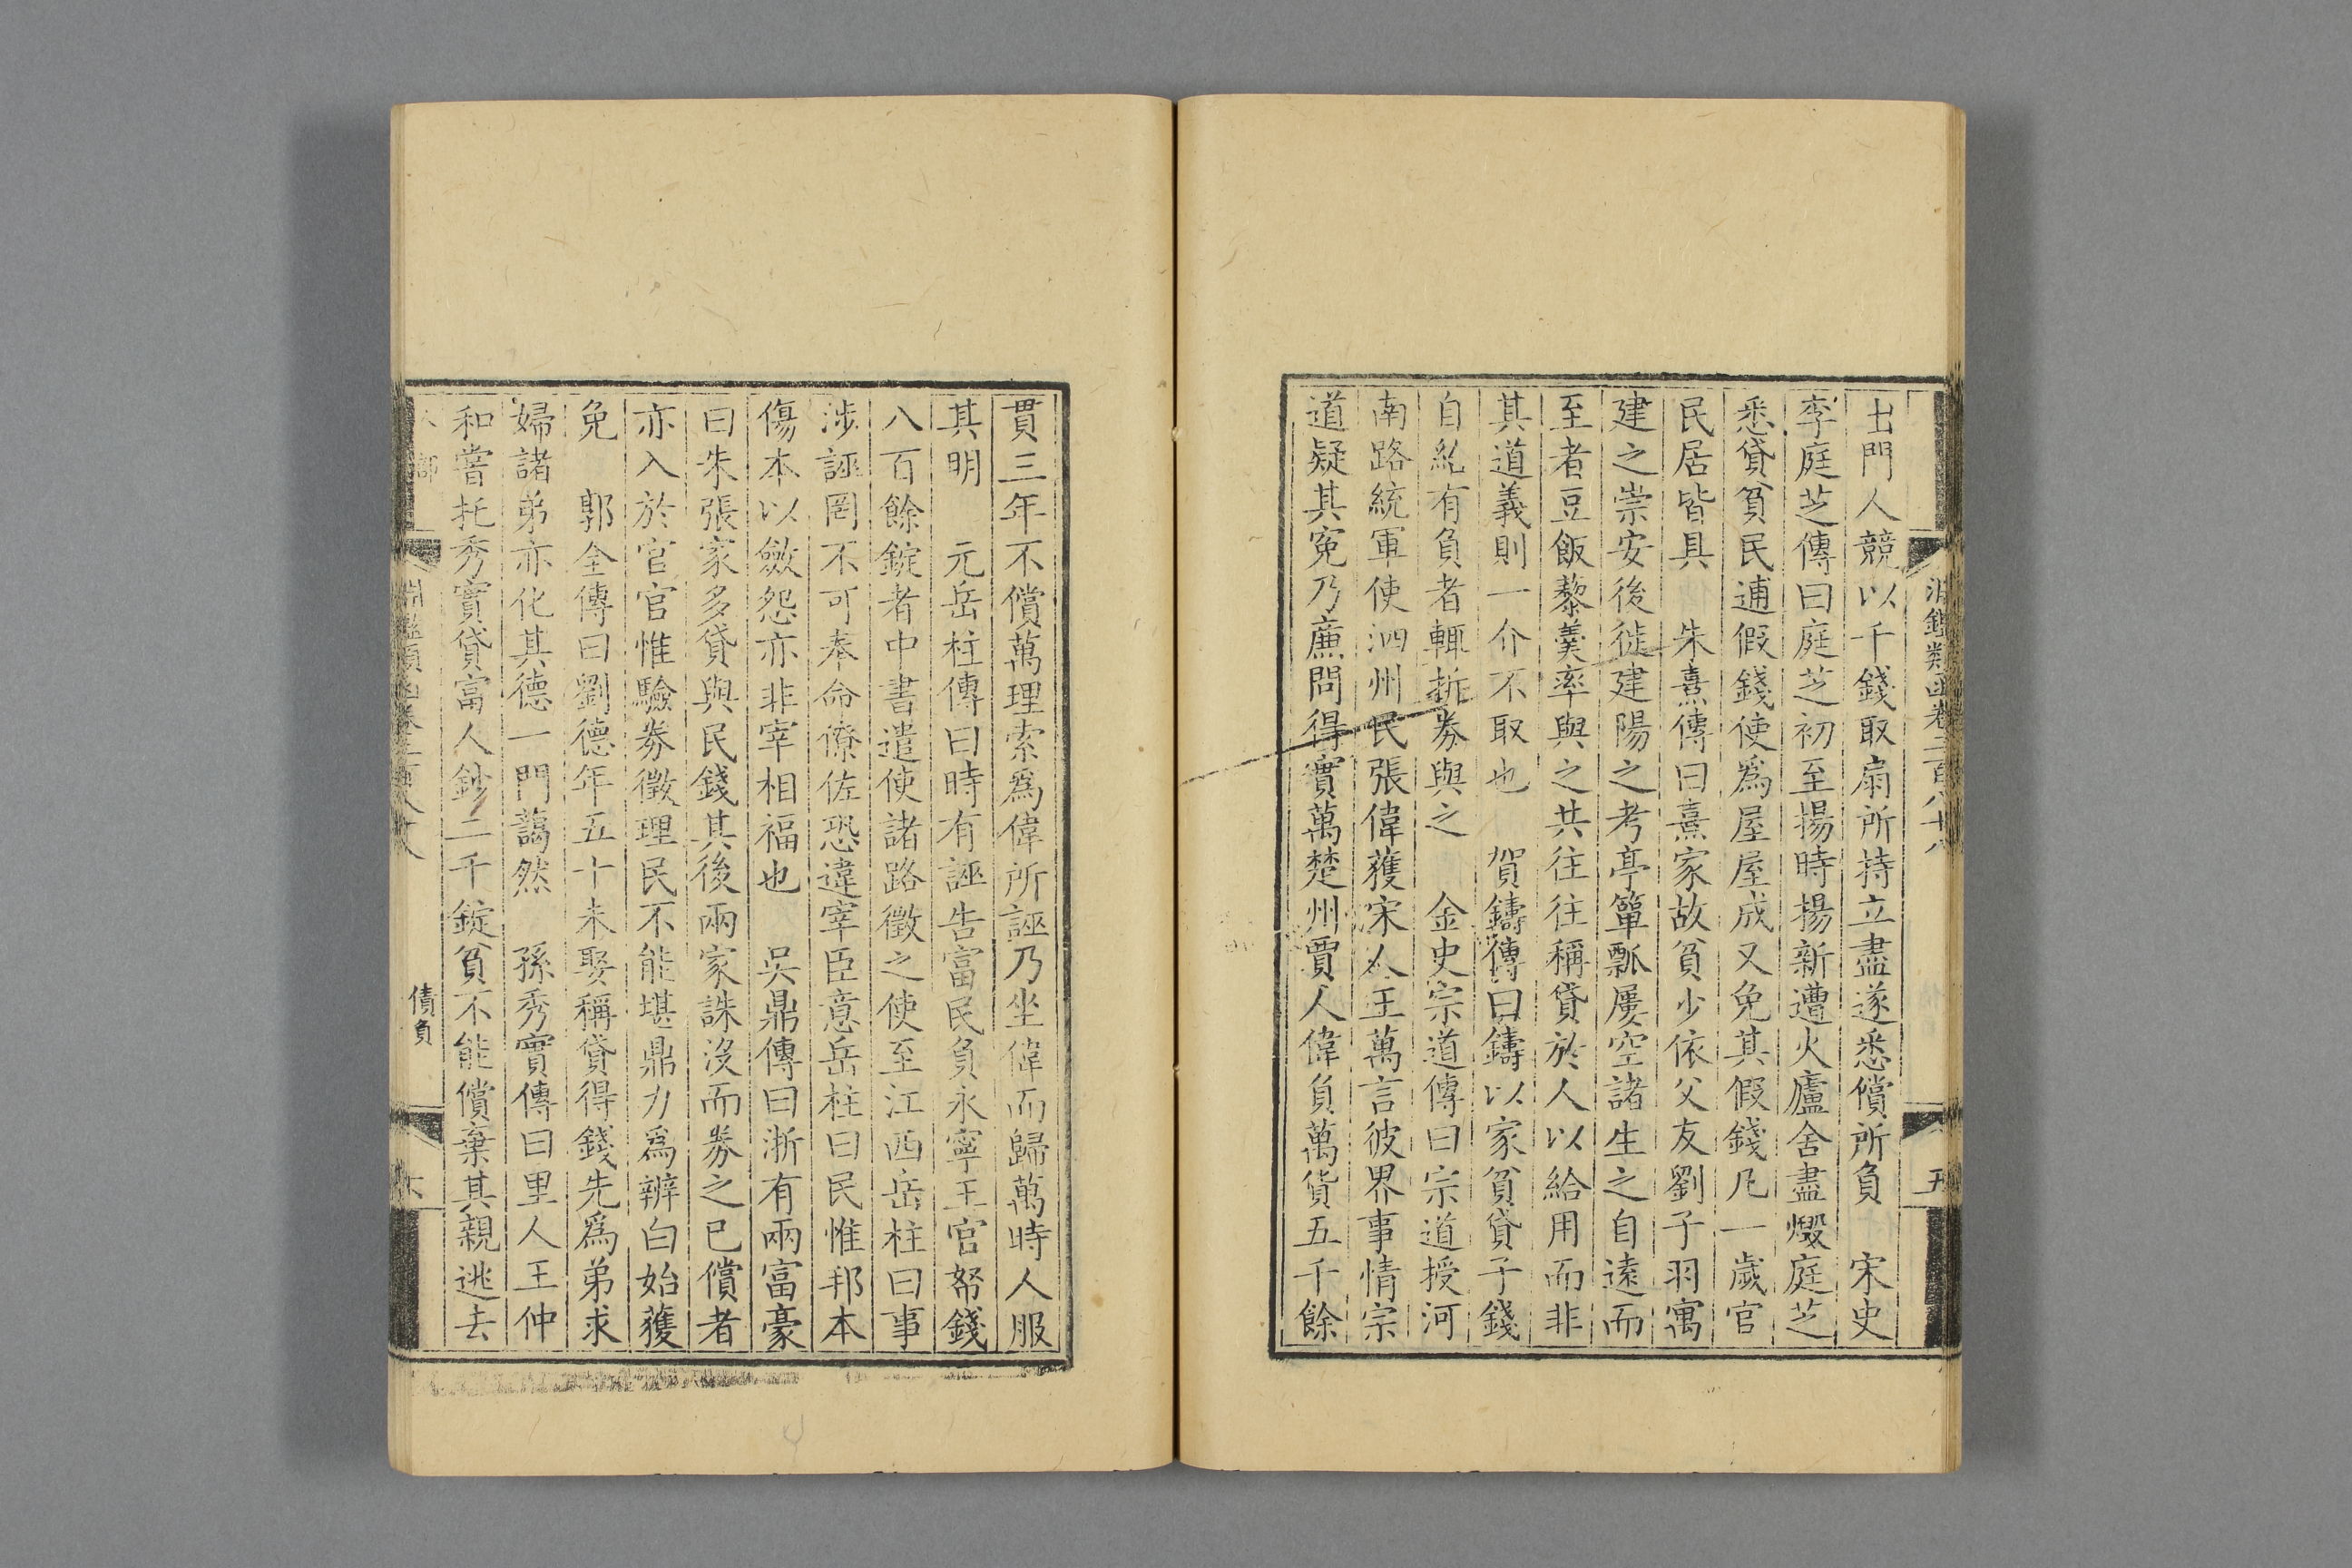 出門人競以千錢取扇所持立盡遂悉償所負　宋史
李庭芝傳曰庭芝初至揚時揚新遭火廬舍盡燬庭芝
悉貸貧民逋假錢使爲屋屋成又免其假錢凡一歲官
民居皆具　朱熹傳曰熹家故貧少依父友劉子羽寓
建之崇安後徙建陽之考亭簞瓢屢空諸生之自遠而
至者豆飯藜羹率與之共往往稱貸於人以給用而非
其道義則一介不取也　賀鑄傳曰鑄以家貧貸子錢
自紀有負者輒折券與之　金史宗道傳曰宗道授河
南路統軍使泗州民張偉獲宋人王萬言彼界事情宗
道疑其寃乃廉問得實萬楚州賈人偉負萬貨五千餘
貫三年不償萬理索爲偉所誣乃坐偉而歸萬時人服
其明　元岳柱傳曰時有誣告富民負永寧王官帑錢
八百餘錠者中書遣使諸路徵之使至江西岳柱曰事
涉誣罔不可奉命僚佐恐違宰臣意岳柱曰民惟邦本
傷本以斂怨亦非宰相福也　吳鼎傳曰浙有兩富豪
曰朱張家多貸與民錢其後兩家誅沒而券之已償者
亦入於官官惟驗券徵理民不能堪鼎力爲辨白始獲
免　郭全傳曰劉德年五十未娶稱貸得錢先爲弟求
婦諸弟亦化其德一門藹然　孫秀實傳曰里人王仲
和嘗托秀實貸富人鈔二千錠貧不能償棄其親逃去
淵鑑類函卷二百八十八
五
債負
六